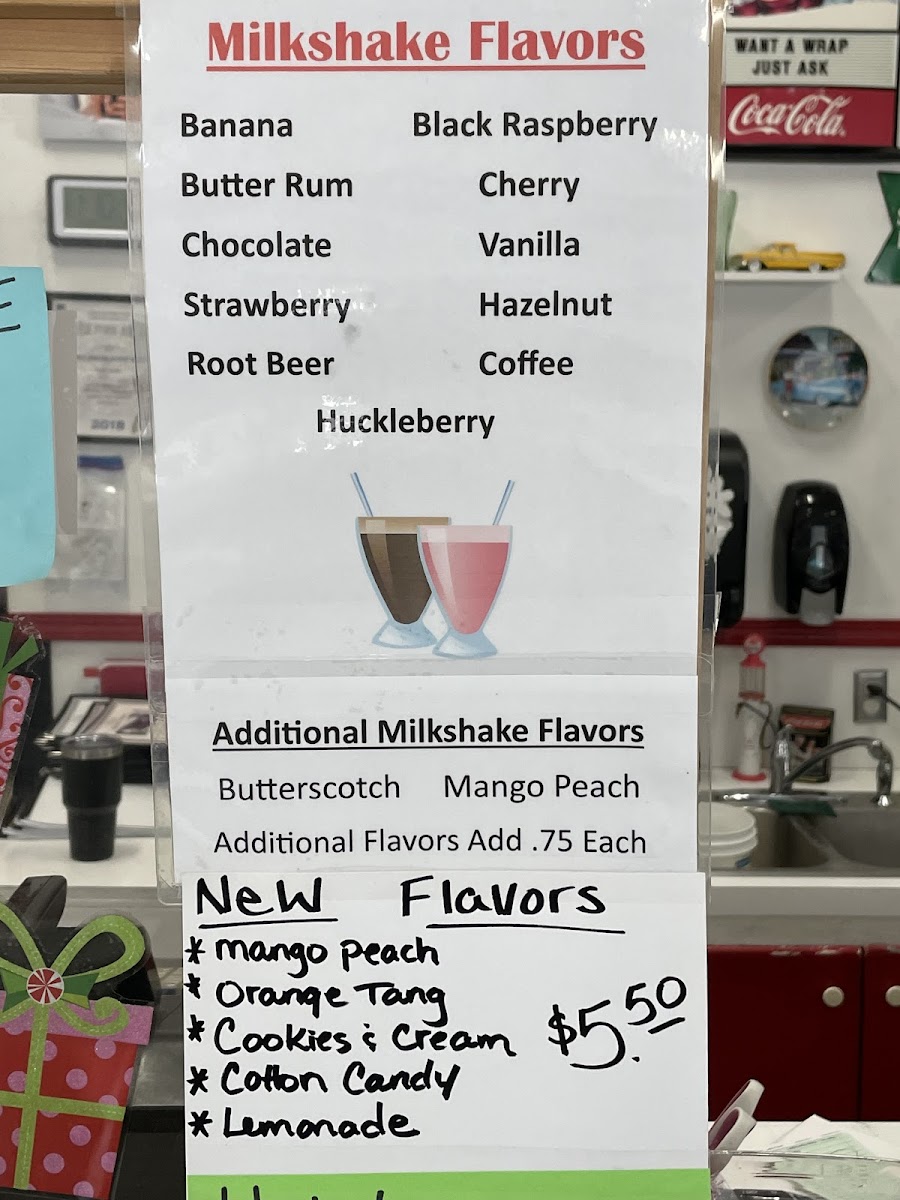 Milkshake Flavors
Banana Black Raspberry
Butter Rum Cherry
Chocolate Vanilla
Strawberry Hazelnut
Root Beer Coffee
Huckleberry
Additional Milkshake Flavors
Butterscotch Mango Peach
Additional Flavors Add .75 Each
New Flavors
* Mango Peach
* Orange Tang
* Cookies & Cream
* Cotton Candy
* Lemonade
$5.50
WANT A WRAP
JUST ASK
Coca-Cola
2018